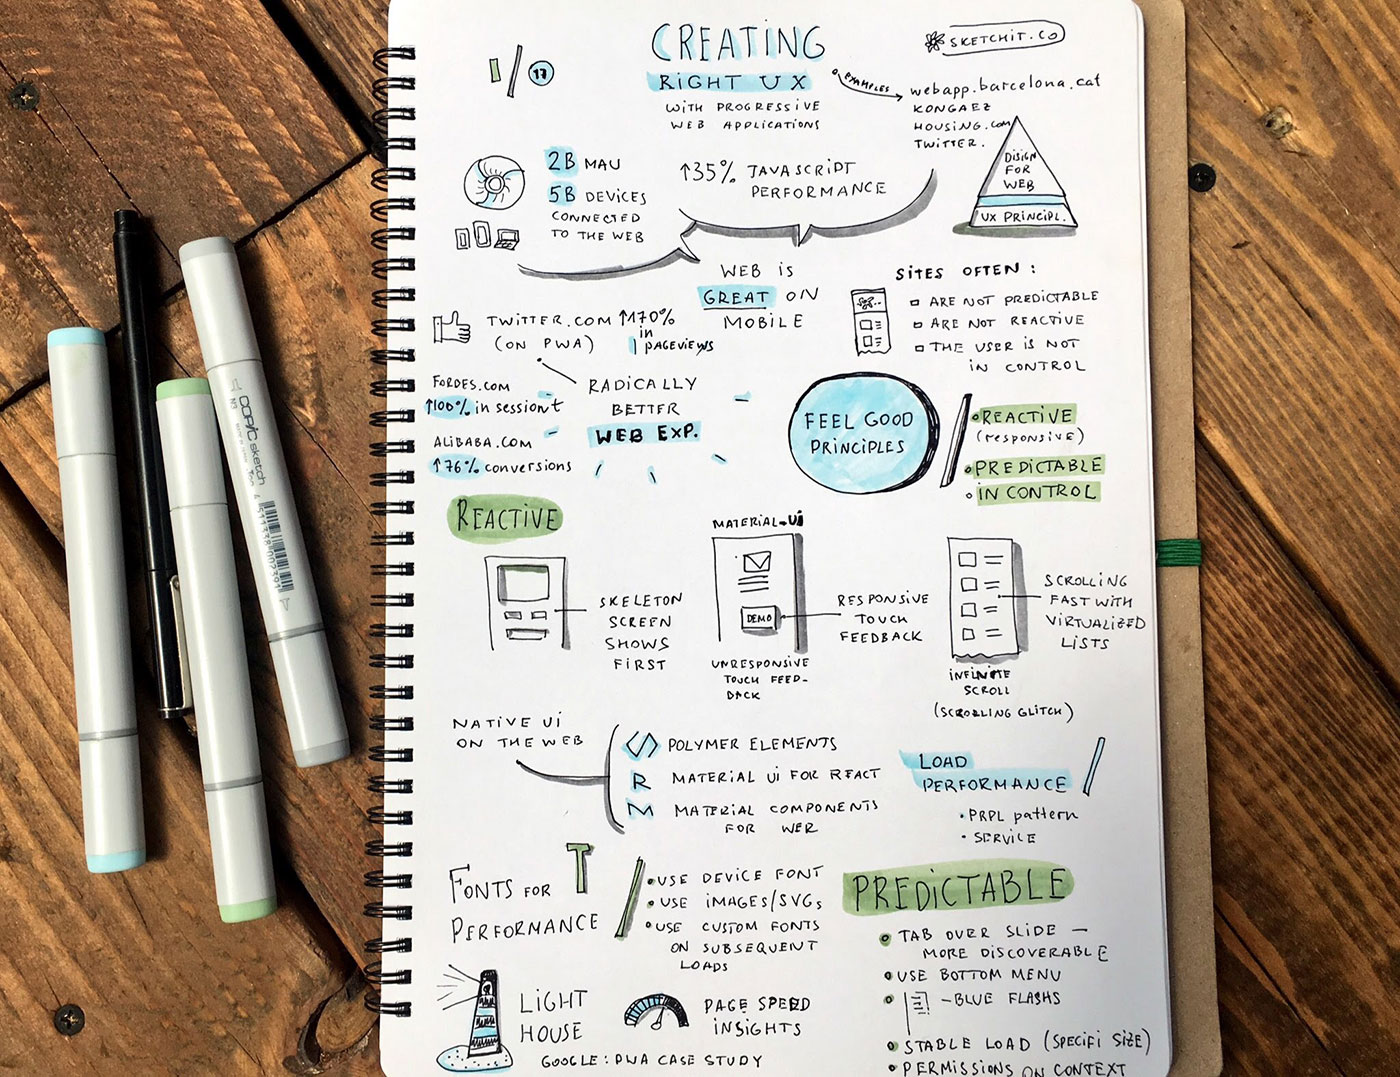 CREATING
RIGHT UX
WITH PROGRESSIVE
WEB APPLICATIONS
SKETCHIT.CO
I/O 17
EXAMPLES
webapp.barcelona.cat
KONGAEZ
HOUSING.com
TWITTER.
DISIGN
FOR
WEB
UX PRINCIPL.
2B MAU
5B DEVICES
CONNECTED
TO THE WEB
↑35% JAVASCRIPT
PERFORMANCE
WEB IS
GREAT ON
MOBILE
SITES OFTEN:
ARE NOT PREDICTABLE
ARE NOT REACTIVE
THE USER IS NOT
IN CONTROL
TWITTER.COM ↑170%
(ON PWA) in
pageviews
FORDES.COM
↑100% in sessiont
ALIBABA.COM
↑76% conversions
RADICALLY
BETTER
WEB EXP.
FEEL GOOD
PRINCIPLES
REACTIVE
(responsive)
PREDICTABLE
IN CONTROL
REACTIVE
SKELETON
SCREEN
SHOWS
FIRST
MATERIAL-UI
DEMO
UNRESPONSIVE
TOUCH FEED-
BACK
RESPONSIVE
TOUCH
FEEDBACK
SCROLLING
FAST WITH
VIRTUALIZED
LISTS
INFINITE
SCROLL
(SCROLLING GLITCH)
NATIVE UI
ON THE WEB
POLYMER ELEMENTS
R MATERIAL UI FOR REACT
M MATERIAL COMPONENTS
FOR WEB
LOAD
PERFORMANCE
• PRPL pattern
• SERVICE
FONTS FOR T
PERFORMANCE
USE DEVICE FONT
USE IMAGES/SVGs
USE CUSTOM FONTS
ON SUBSEQUENT
LOADS
PREDICTABLE
TAB OVER SLIDE —
MORE DISCOVERABLE
USE BOTTOM MENU
– BLUE FLASHS
STABLE LOAD (SPECIFI SIZE)
PERMISSIONS ON CONTEXT
LIGHT
HOUSE
PAGE SPEED
INSIGHTS
GOOGLE: PWA CASE STUDY
COPIC sketch